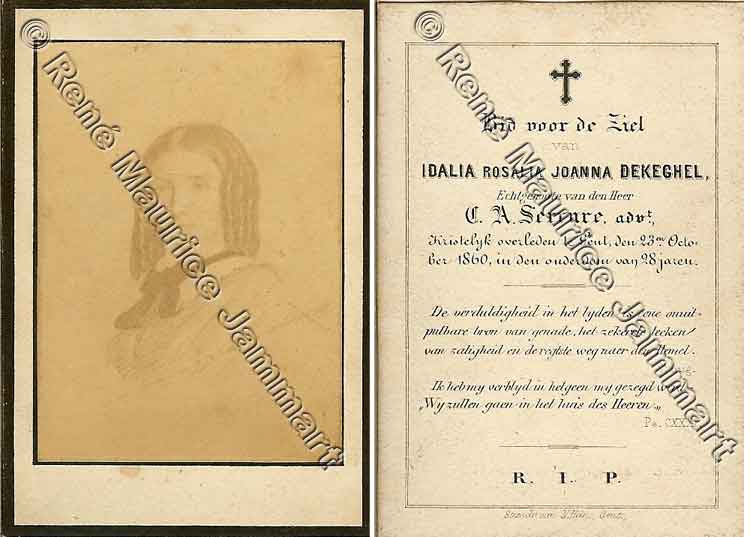 © René Maurice Jammart
© René Maurice Jammart
Bid voor de Ziel
van
IDALIA ROSALIA JOANNA DEKEGHEL,
Echtgenoote van den Heer
C. A. Serrure, advt,
Kristelyk overleden te Gent, den 23en Octo-
ber 1860, in den ouderdom van 28 jaren.
De verduldigheid in het lyden is eene onuit-
putbare bron van genade, het zekerste teeken
van zaligheid en de regtste weg naer den Hemel.
Ik heb my verblyd in hetgeen my gezegd werd
„Wy zullen gaen in het huis des Heeren„
Ps. CXXI
R. I. P.
Gent.